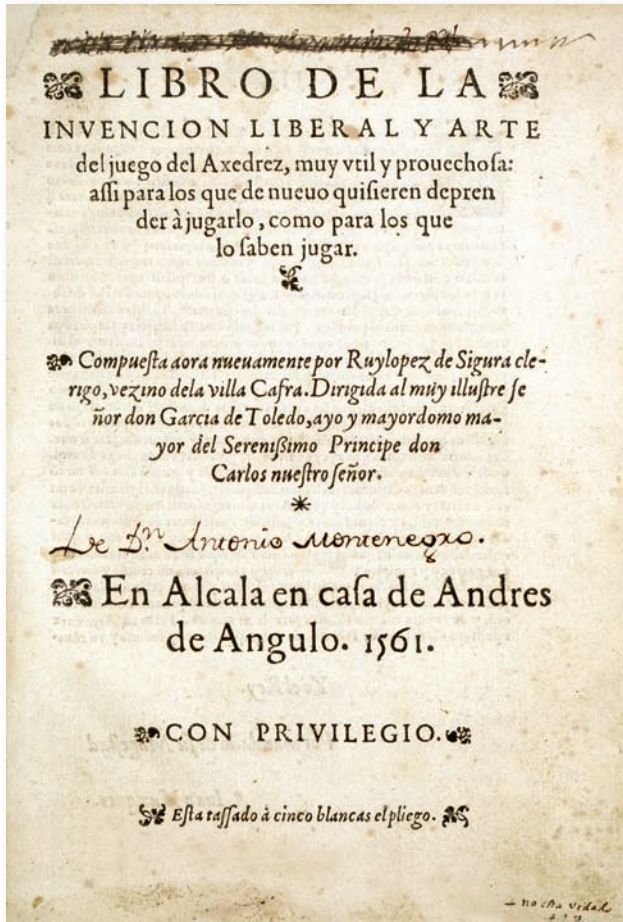 LIBRO DE LA
INVENCION LIBERAL Y ARTE
del juego del Axedrez, muy vtil y prouechoſa:
aſſi para los que de nueuo quiſieren depren
der à jugarlo, como para los que
lo ſaben jugar.
Compueſta aora nueuamente por Ruylopez de Sigura cle-
rigo, vezino dela villa Cafra. Dirigida al muy illuſtre ſe
ñor don Garcia de Toledo, ayo y mayordomo ma-
yor del Sereniſsimo Principe don
Carlos nueſtro ſeñor.
*
De Dn Antonio Montenegro.
En Alcala en caſa de Andres
de Angulo. 1561.
CON PRIVILEGIO.
Eſta taſſado à cinco blancas el pliego.